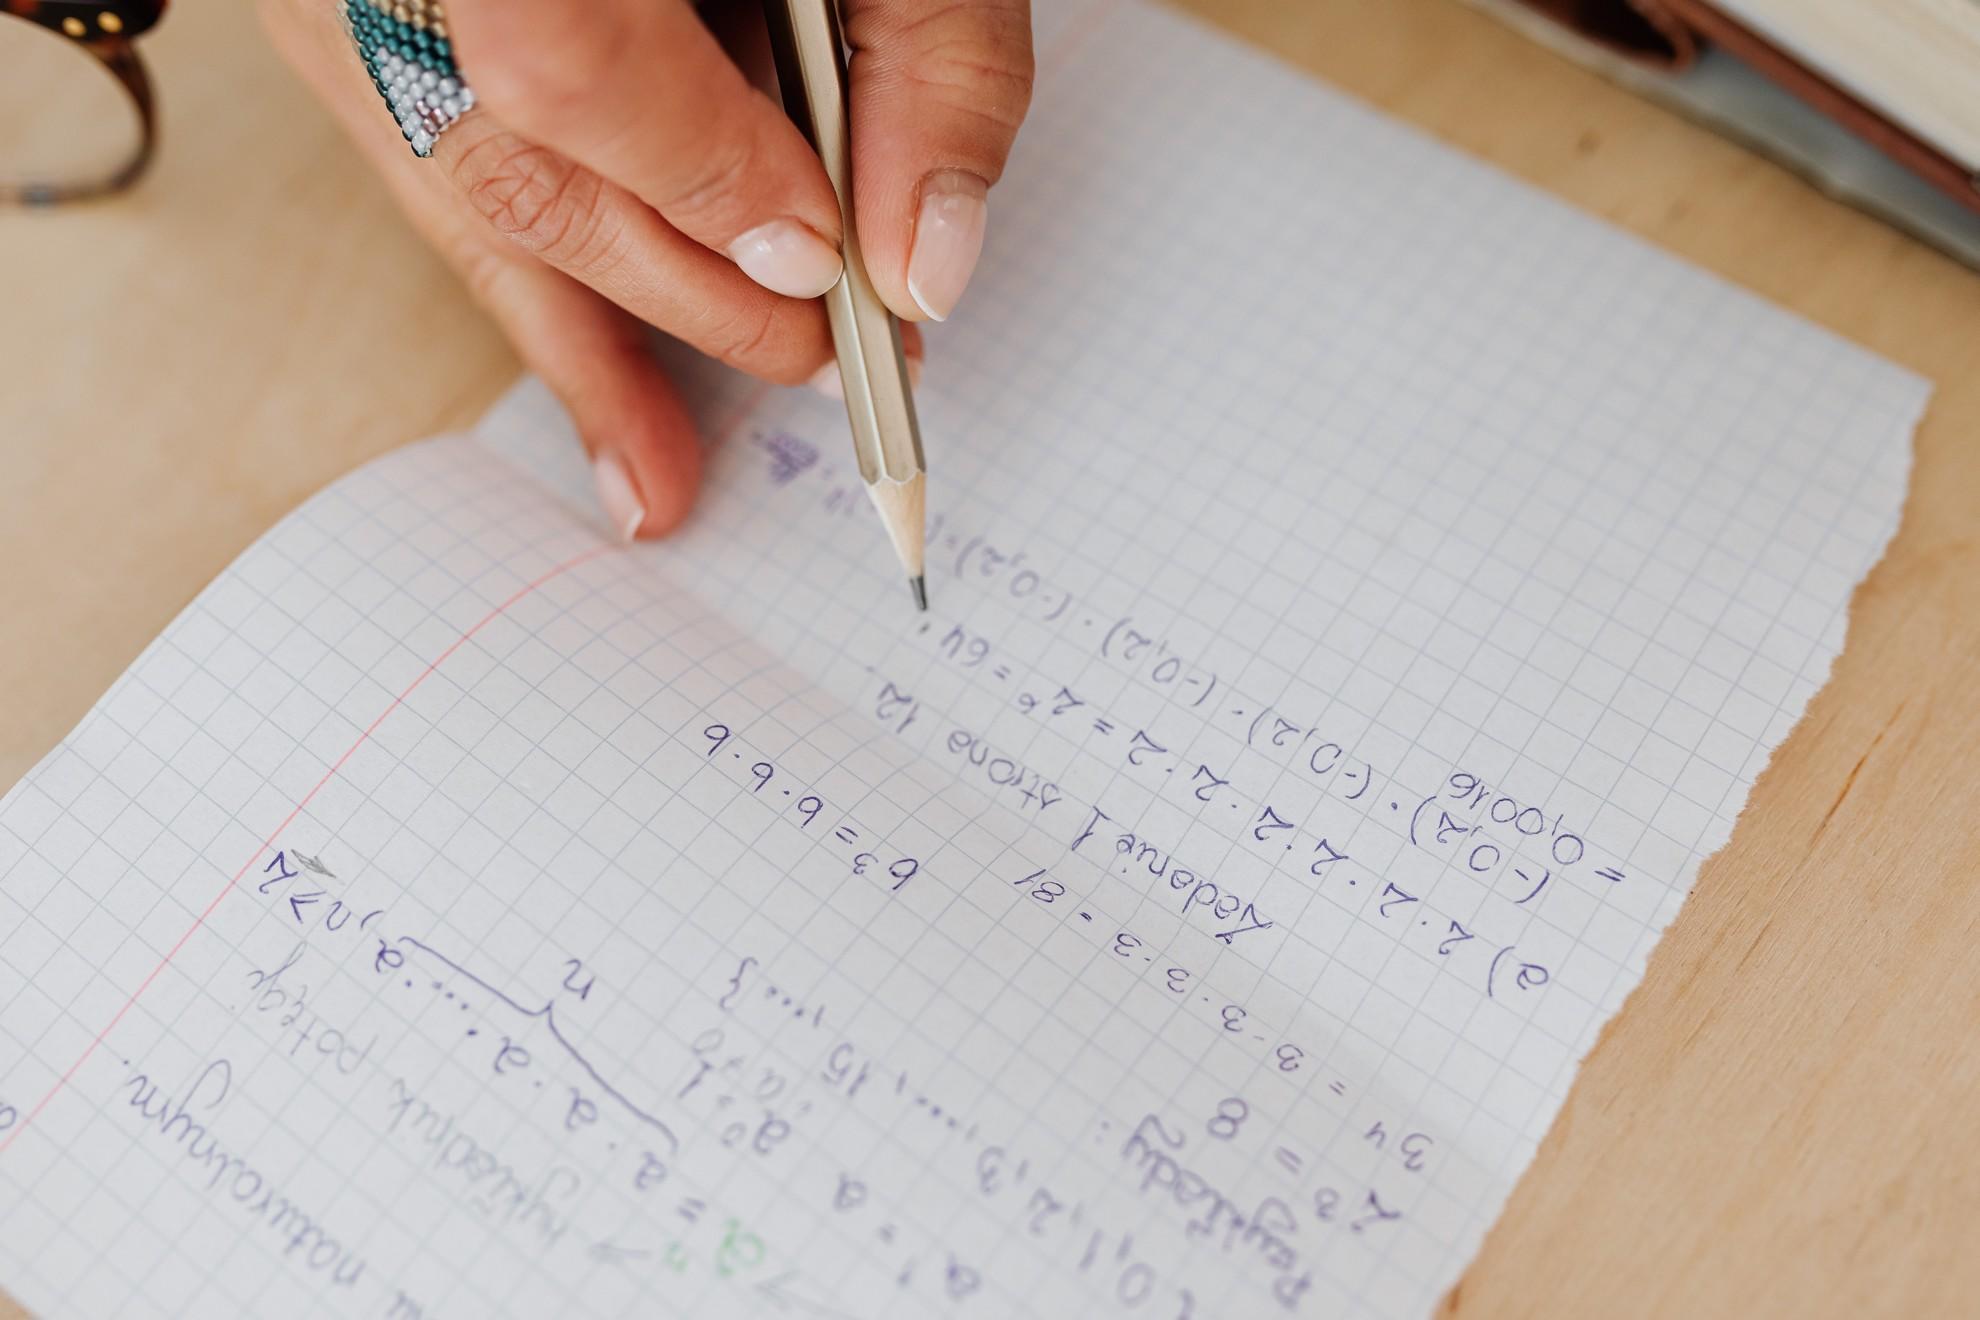 naturalnym.
wykładnik potęgi
aⁿ = a · a · a · ... · a, n ≥ 2
n
a¹ = a
a⁰ = 1
0, 1, 2, 3, ..., 15, ...}
Przykłady:
2³ = 8
3⁴ = 3 · 3 · 3 · 3 = 81
b³ = b · b · b
Zadanie 1 strona 12.
a) 2 · 2 · 2 · 2 · 2 · 2 = 2⁶ = 64
(-0,2) · (-0,2) · (-0,2) · (-0,2) =
= 0,0016